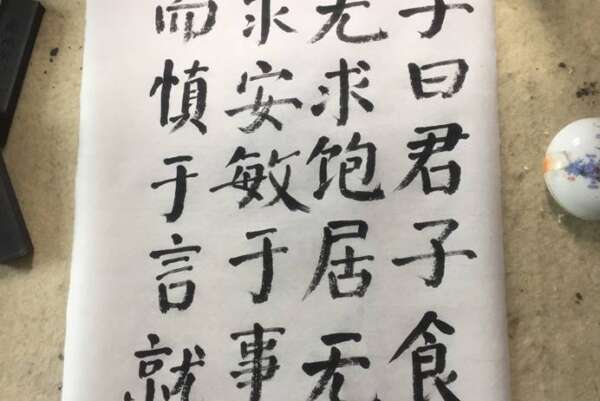 子曰君子食
无求饱居无
求安敏于事
而慎于言就